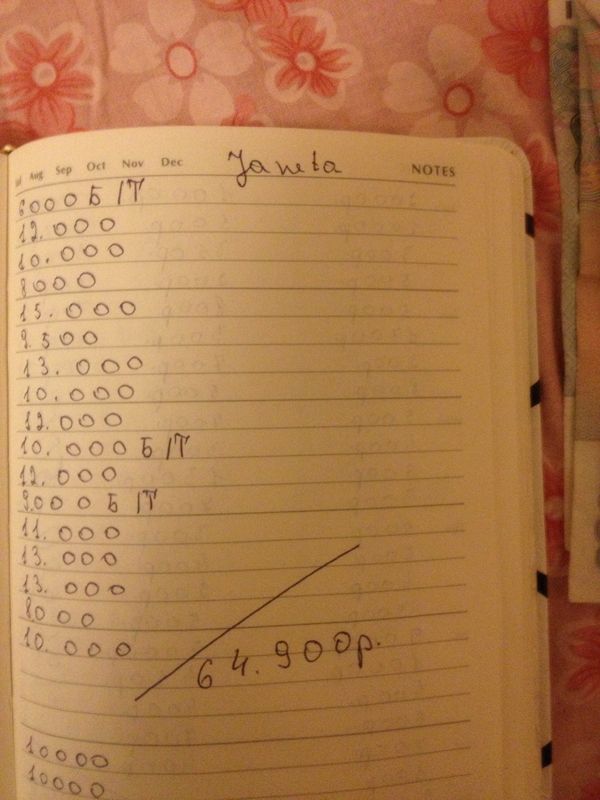 Jul Aug Sep Oct Nov Dec Janeta NOTES
6000 Б/Т
12.000
10.000
8000
15.000
9.500
13.000
10.000
12.000
10.000 Б/Т
12.000
9.000 Б/Т
11.000
13.000
13.000
8000
10.000
64.900р.
10000
10000